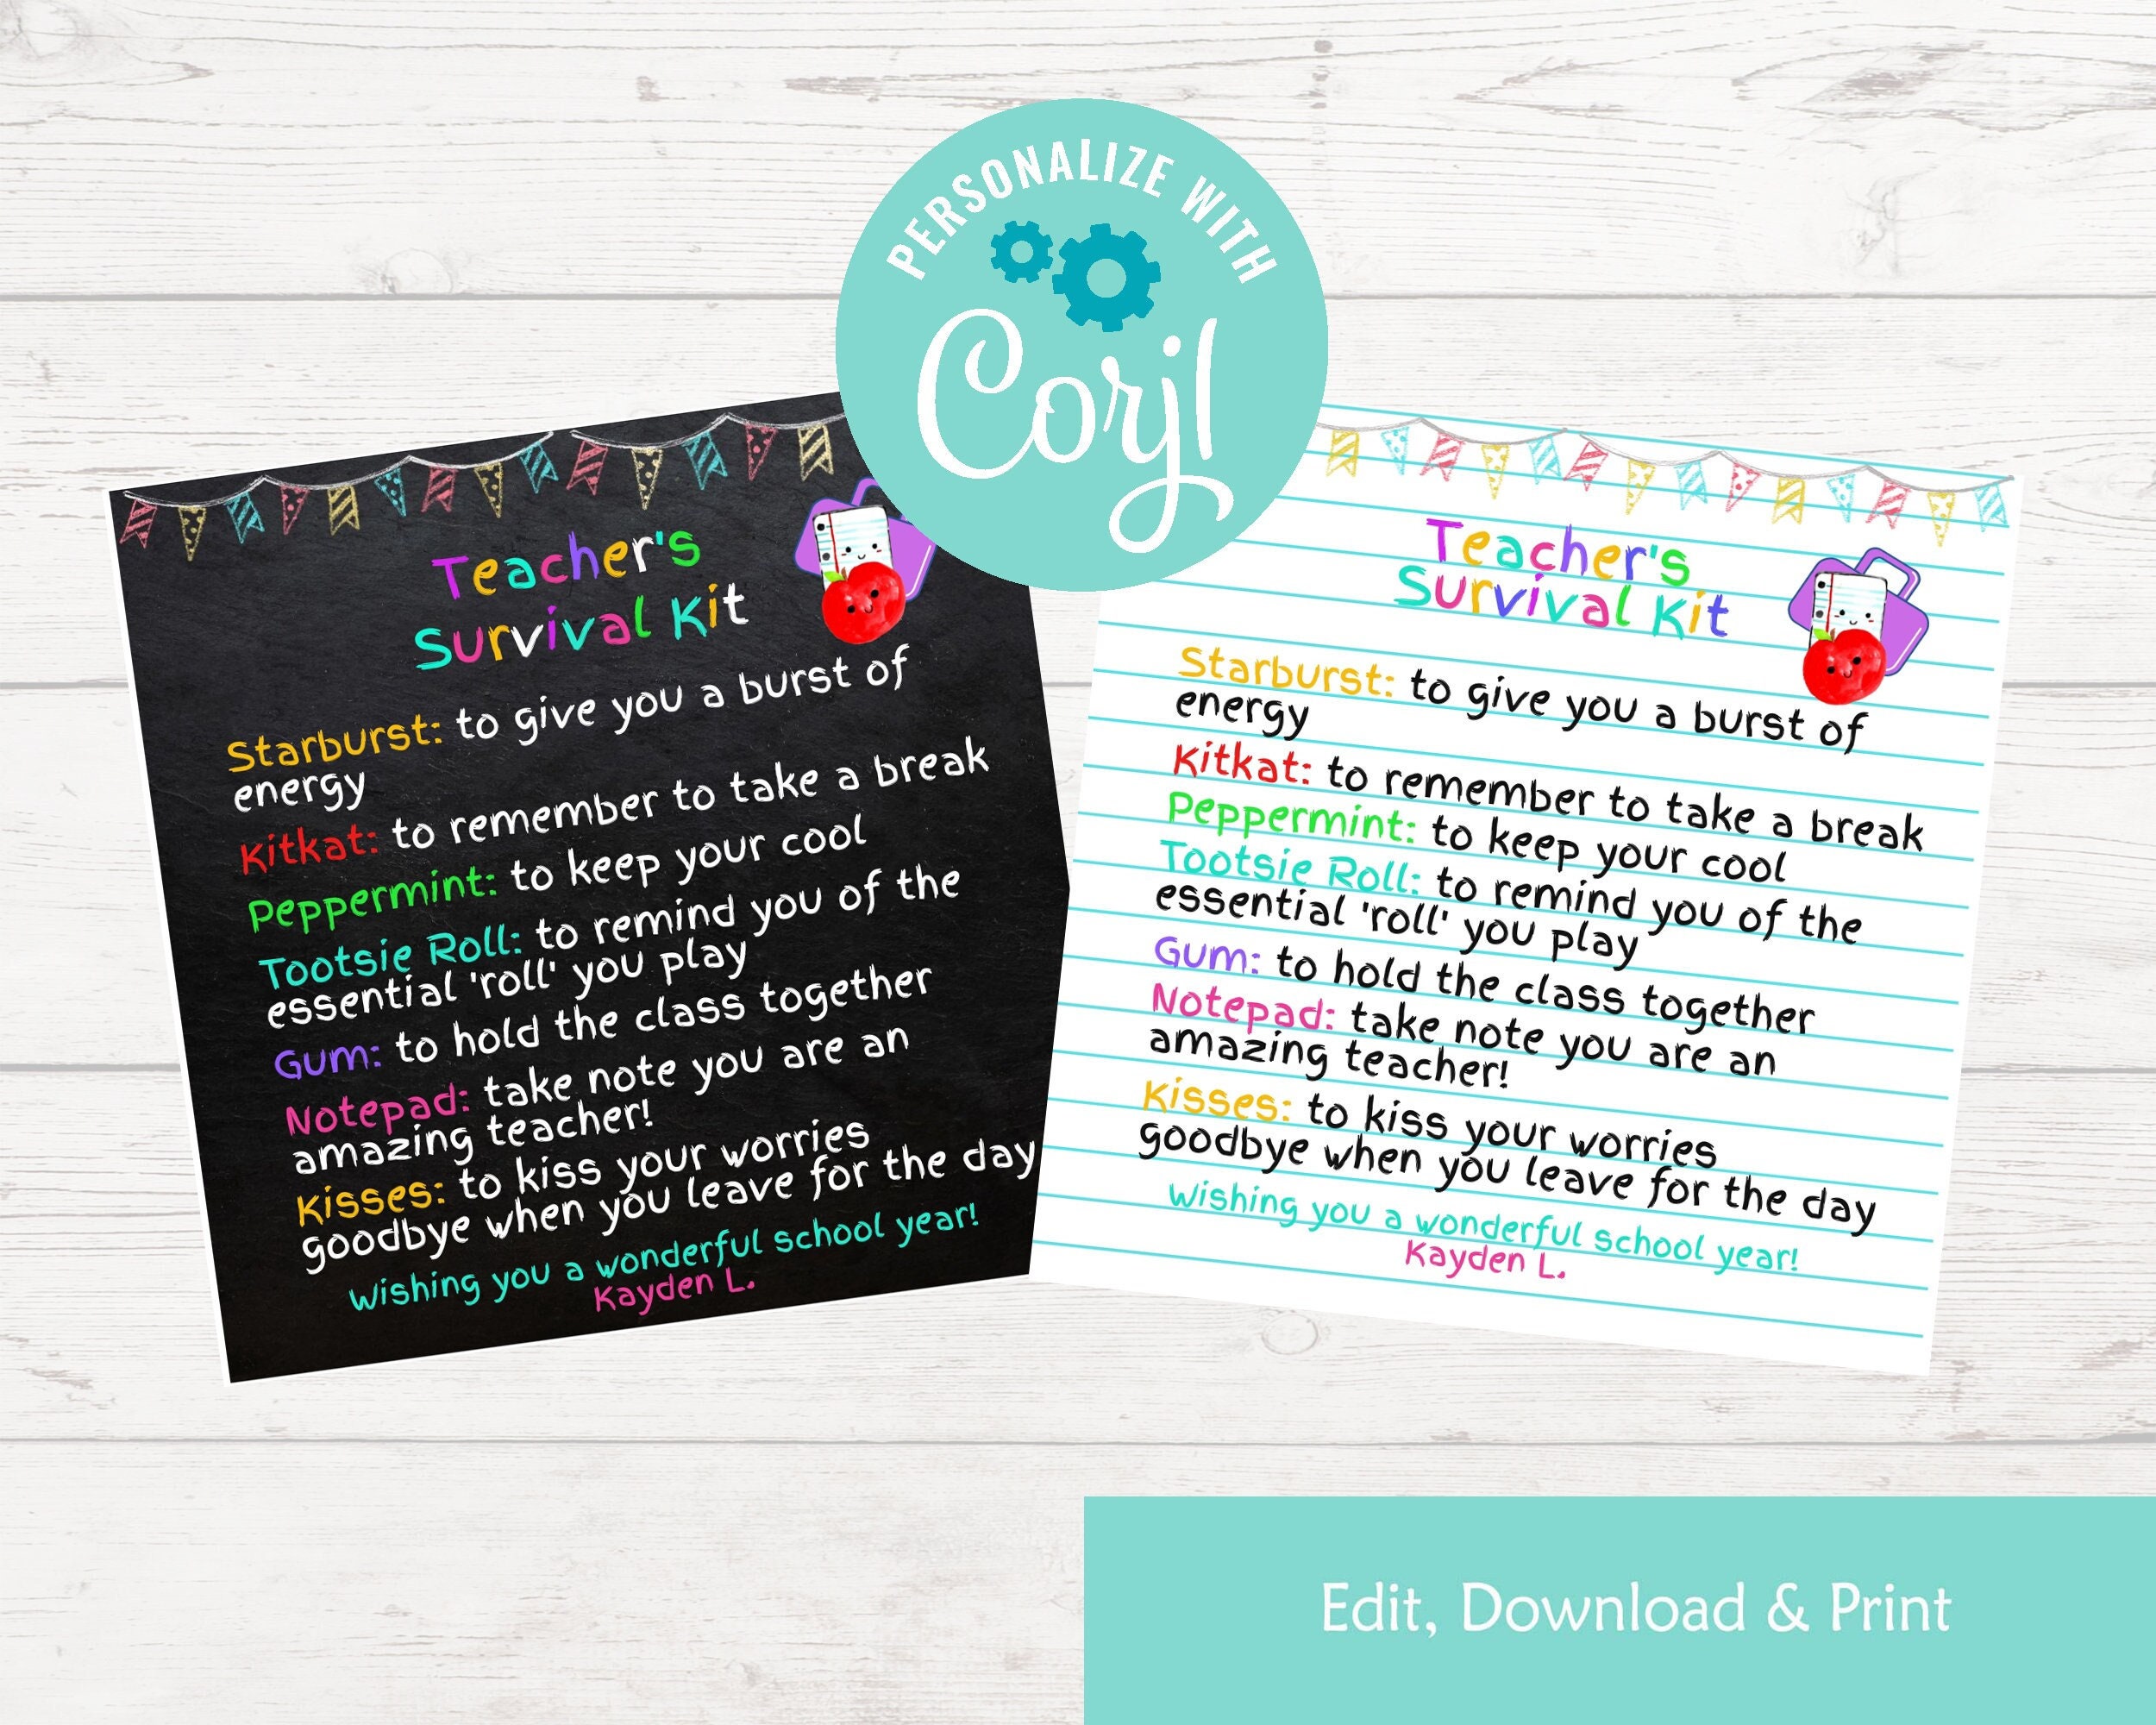 PERSONALIZE WITH
Corjl
Teacher's
Survival Kit
Starburst: to give you a burst of
energy
Kitkat: to remember to take a break
Peppermint: to keep your cool
Tootsie Roll: to remind you of the
essential 'roll' you play
Gum: to hold the class together
Notepad: take note you are an
amazing teacher!
Kisses: to kiss your worries
goodbye when you leave for the day
Wishing you a wonderful school year!
Kayden L.
Teacher's
Survival Kit
Starburst: to give you a burst of
energy
Kitkat: to remember to take a break
Peppermint: to keep your cool
Tootsie Roll: to remind you of the
essential 'roll' you play
Gum: to hold the class together
Notepad: take note you are an
amazing teacher!
Kisses: to kiss your worries
goodbye when you leave for the day
Wishing you a wonderful school year!
Kayden L.
Edit, Download & Print